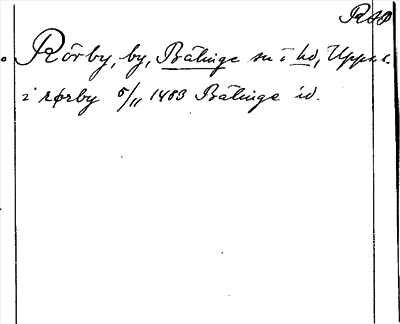 RAÄ
Rörby, by, Bälinge sn i hd, Upps. l.
i rørby 5/11 1483 Bälinge id.